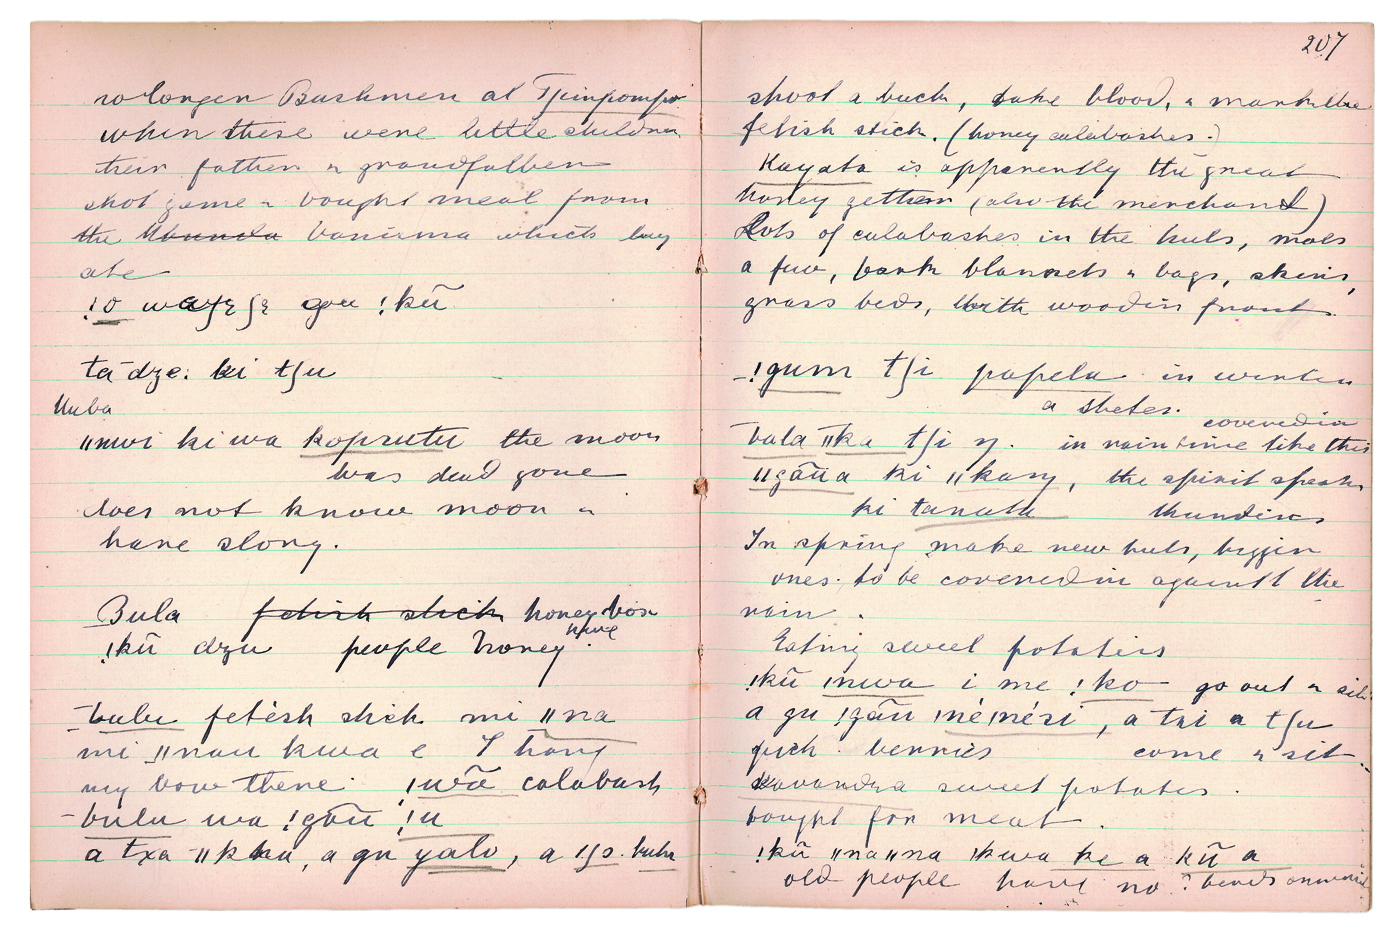 no longer Bushmen at Tʃimpompo
when these were little children
their father & grandfather
shot game & bought meal from
the Mbunda vanisma which they
ate
!o waʃɛʃɛ gou !kũ
ta dze: ki tʃu
ǁnwi ki wa kopzutu the moon
was dead gone
does not know moon &
hare story.
Bula fetish stick honey box
!kũ dzu people honey
have
bulu fetish stick mi ǁna
mi ǁnau kwa e I hang
my bow there !wã calabash
bulu wa !gãũ !u
a txa ǁkha, a gu yalo,
207
shoot a buck, take blood, & mark the
fetish stick. (honey calabashes.)
Kayata is apparently the great
honey getter (also the merchant)
Lots of calabashes in the huts, mats
a few, bark blankets & bags, skins,
grass beds, with wooden front
!gum tʃi papela in winter
a shelter.
covered in
bala ǁka tʃi ŋ. in rain time like this
ǁgãũa ki ǁkaŋ, the spirit speaks
ki tanala thunders
In spring make new huts, bigger
ones. to be covered in against the
rain.
Eating sweet potatoes
!kũ !nwa i me !ko go out & sit
a gu !gãu ǀnéǀnési, a tsi a tʃu
pick berries come & sit
kavandza sweet potatoes.
bought for meat.
!kũ ǁnaǁna ǀkwa ke a kũ a
old people have no ? beads